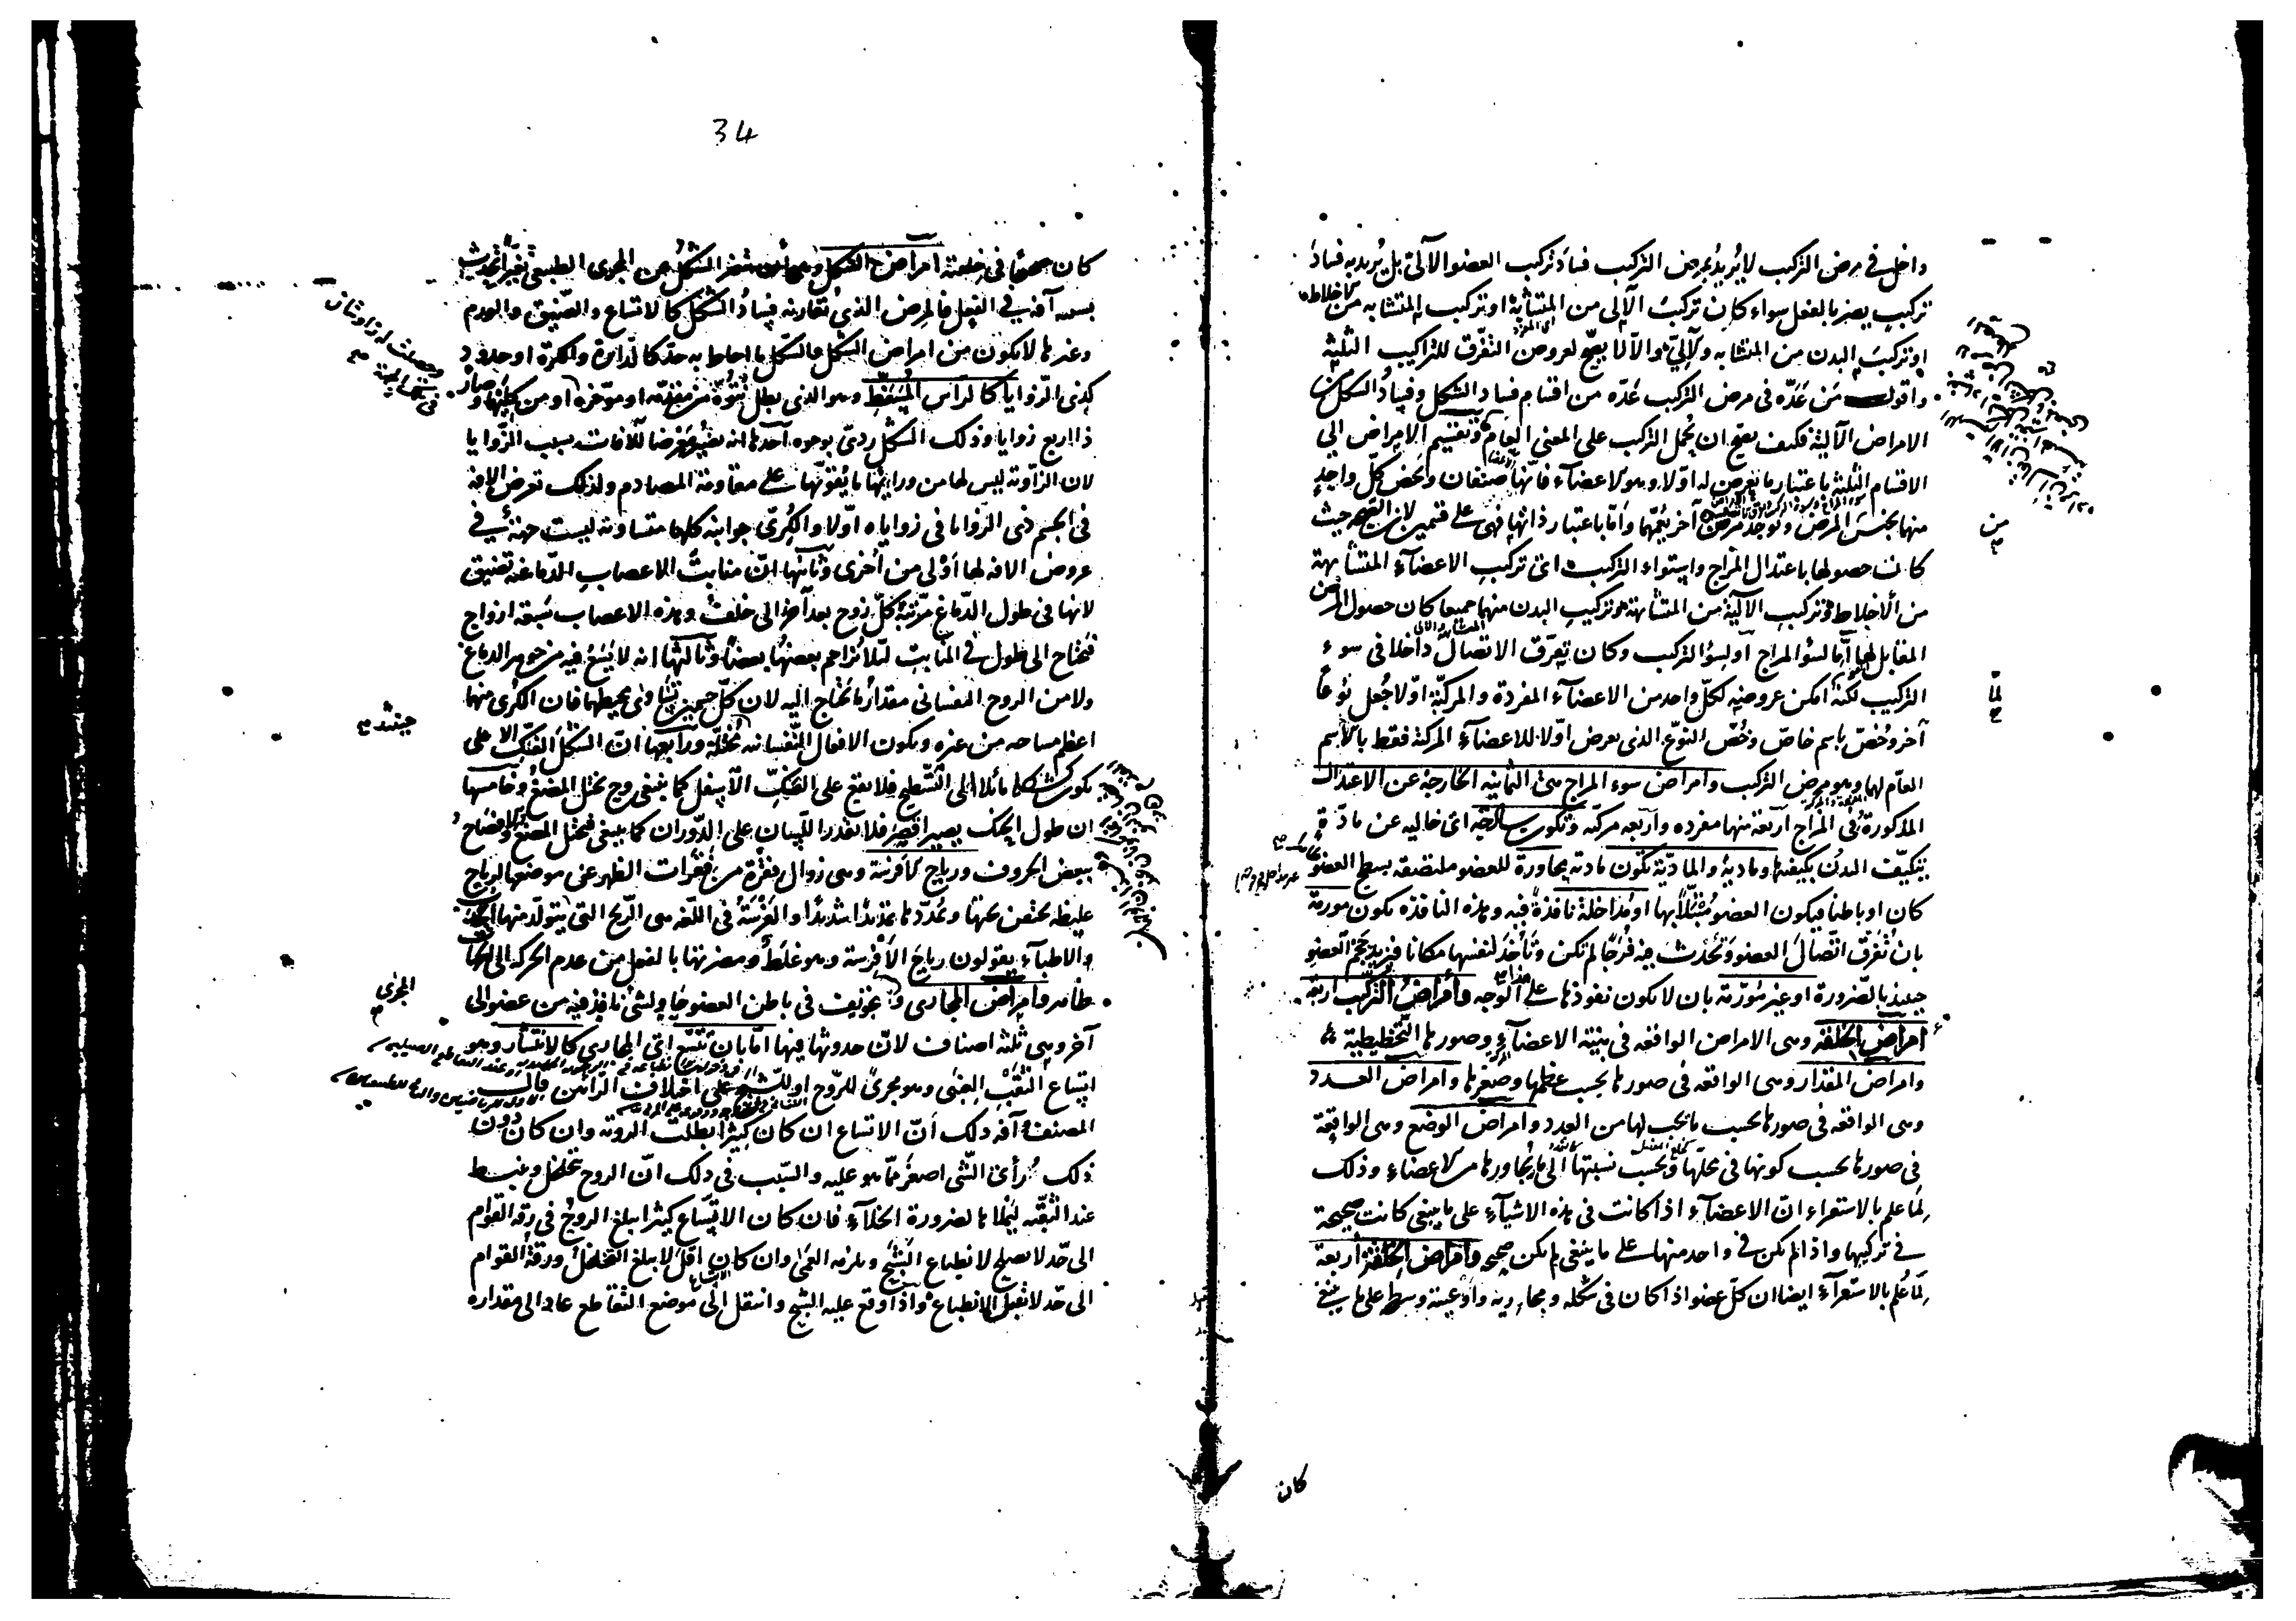 داخل فى مرض التركيب لا يُريدُ بمرض التركيب فسادَ تركيب العضو الآلى بل يُريد به فسادَ
تركيبٍ يضر بالفعل سواء كان تركيبَ الآلى من المتشابهة او تركيب المتشابه من الاخلاط
او تركيبَ البدن من المتشابه والآلىّ والّا لا يصحّ لعروض التفرّق للتراكيب الثلثة
واقول مَنْ عَدَّه فى مرض التركيب عَدّه من اقسام فساد الشكل وفساد الشكل من
الامراض الآليّة فكيف يصح ان يُحمل التركيب على المعنى العام وتقسيم الامراض الى
الاقسام الثلثة باعتبار ما يعرض له اوّلا وهو الاعضآء فانها صنفان ويخص كلّ واحدٍ
منها بجنسَ المرض ويوجد مرضٌ آخر يعُمّها وامّا باعتبار ذاتها فهى على قسمين لان الصحة حيث
كانت حصولها باعتدال المزاج واستواء التركيب اى تركيب الاعضآء المتشابهة
من الاخلاط وتركيب الآلية من المتشابهة وتركيب البدن منهما جميعا كان حصول المرض
المقابل لها امّا لسوء المزاج او لسوء التركيب وكان تفرّق الاتصال داخلا فى سوء
التركيب لكنه امكن عروضه لكلّ واحد من الاعضآء المفردة والمركبّة اوّلا جُعل نوعًا
آخر وخُصّ باسم خاصّ وخُصّ النوّع الذى يعرض اوّلا للاعضآء المركبة فقط بالاسم
العامّ لها وهو مرض التركيب وامراض سوء المزاج هى الثمانيه الخارجة عن الاعتدال
المذكورة فى المزاج اربعة منها مفرده واربعه مركبّه وتكون ساذجة اى خاليه عن مادّة
يتكيّف البدن بكيفيتها ومادية والماديّة تكون مادته مجاورة للعضو ملتصقه بسطح العضو
كان او باطنا فيكون العضو مُبْتَلًّا بها او مُداخلةً نافذةً فيه وهذه النافذه تكون مورمة
بان تُفَرّق اتّصالَ العضو وتُحْدثَ فيه فُرَجًا لم تكن وتأخذ لنفسها مكانا فيزيد حَجمُ العضو
حينئذ بالضرورة او غير مُورّمة بان لا يكون نفوذها على هذا الوجه وامراضُ التركيب اربعة
امراض الخلقة وهى الامراض الواقعه فى بنية الاعضآء وصورها التخطيطية
وامراض المقدار وهى الواقعه فى صورها بحسب عظمها وصغرها وامراض العدد
وهى الواقعه فى صورها بحسب ما يجب لها من العدد وامراض الوضع وهى الواقعة
فى صورها بحسب كونها فى محلّها وبحسب نسبتها الى ما يُجاورها من الاعضاء وذلك
لِمَا علم بالاستقراء انّ الاعضآء اذا كانت فى هذه الاشيآء على ما ينبغى كانت صحيحة
فى تركيبها واذا لم تكن فى واحد منها على ما ينبغى لم تكن صحيحه وامراض الخلقة اربعة
لِمَا عُلم بالاستقرآء ايضا ان كلّ عضو اذا كان فى شكله ومجاريه واوعيته وسطحه على ما ينبغى
من
لمّا
كان
34
كان صحيحا فى خلقته امراض الشكل وهى أن يتغير الشكلُ عن المجرى الطبيعى تغيّرا تحدث
بسببه آفة فى الفعل فالمرض الذى يُقارنه فسادُ الشكل كالاتساع والضّيق والورم
وغيرها لا يكون من امراض الشكل والشكل ما احاط به حدّ كالدايرة والكرة او حدود
كذى الزّوايا كالرأس المُسَفَّط وهو الذى بطل نتؤه من مقدّمه او مؤخّره او من كليهما وصار
ذا اربع زوايا وذلك الشكل ردىّ بوجوه احدها انه يصير مُعَرَّضا للآفات بسبب الزّوايا
لان الزّاوية ليس لها من ورائها ما يُقوّيها على مقاومة المصادم ولذلك تعرض الآفة
فى الجسم ذى الزّوايا فى زواياه اوّلا والكُرىّ جوانبه كلها متساوية ليست جهةٌ فى
عروض الآفه لها اَوْلى من أخرى وثانيها انّ منابتَ الاعصابِ الدّماغية تضيق
لانها فى طول الدّماغ مرّتبة كلّ زوج بعد آخر الى خلفٍ وهذه الاعصاب سَبعة ازواج
فتحتاج الى طول فى المنابت لئلا يُزاحم بعضها بعضا وثالثها انه لا يَسَعُ فيه من جوهر الدماغ
ولا من الروح النفسانى مقدارُ ما يُحتاج اليه لان كلّ جسمين يتساوى محيطهما فان الكرى منهما
اعظم مساحه من غيره وتكون الافعال النّفسانيه مُختلّة ورابعها انّ الشكل الفكّ الاعلى
يكون شكله مائلا الى التّسطيح فلا يقع على الفكّ الاسفل كما ينبغى وح يختل المضغ وخامسها
ان طول الحنك يصير اقصر فلا يقدر اللّسان على الدّوران كما ينبغى فيختل المضغ والافصاح
ببعض الحروف ورياح الأفرسة وهى زوال فقرة من فقرات الظهر عن موضعها لرياح
غليظه تحتقن تحتها وتُمدّدها تمديدًا شديدًا والفَرْسَةُ فى اللّغه هى الرّيح التى يتولّد منها الحدب
والاطبآء يقولون رياح الاَفْرِسة وهو غلطٌ ومضرتها بالفعل من عدم الحركة الى الجهات
ظاهر وامراض المجارى و تجويف فى باطن العضو حاوٍ لشئ نافذ فيه من عضو الى
آخر وهى ثلثه اصناف لانّ حدوثها فيها امّا بان تتّسع اى المجارى كالانتشار وهو
اتّساع الثّقب العِنَبى وهو مجرى للرّوح او للشبح على اختلاف الرأيين قال
المصنف آفه ذلك انّ الاتساع ان كان كثيرا بطلت الروية وان كان دون
ذلك رُأى الشّى اصغرَ ممّا هو عليه والسّبب فى ذلك انّ الروح يتخلخل وينبسط
عند الثقبه ليملأها لضرورة الخلآء فان كان الاتّساع كثيرا يبلغ الروح فى رقه القوام
الى حّد لا يصلح لانطباع الشبح ويلزمه العَمى وان كان اقل لا يبلغ التخلخل ورقّة القوام
الى حّد لا يقبل الانطباع واذا وقع عليه الشبح وانتقل الى موضع التقاطع عاد الى مقداره
حينئذ
المجرى